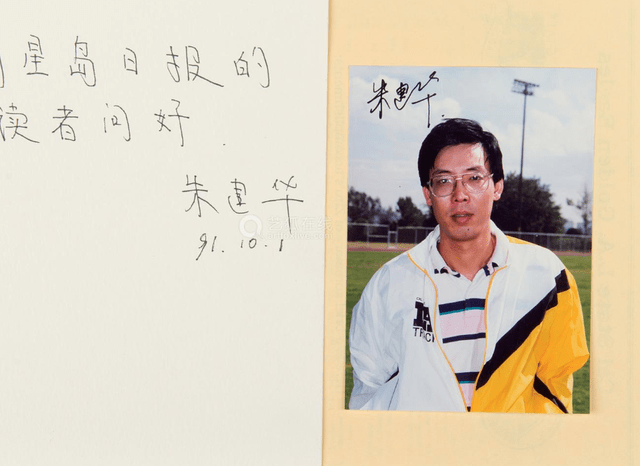 星岛日报的
读者问好.
朱建华
91.10.1
朱建华
TRACK